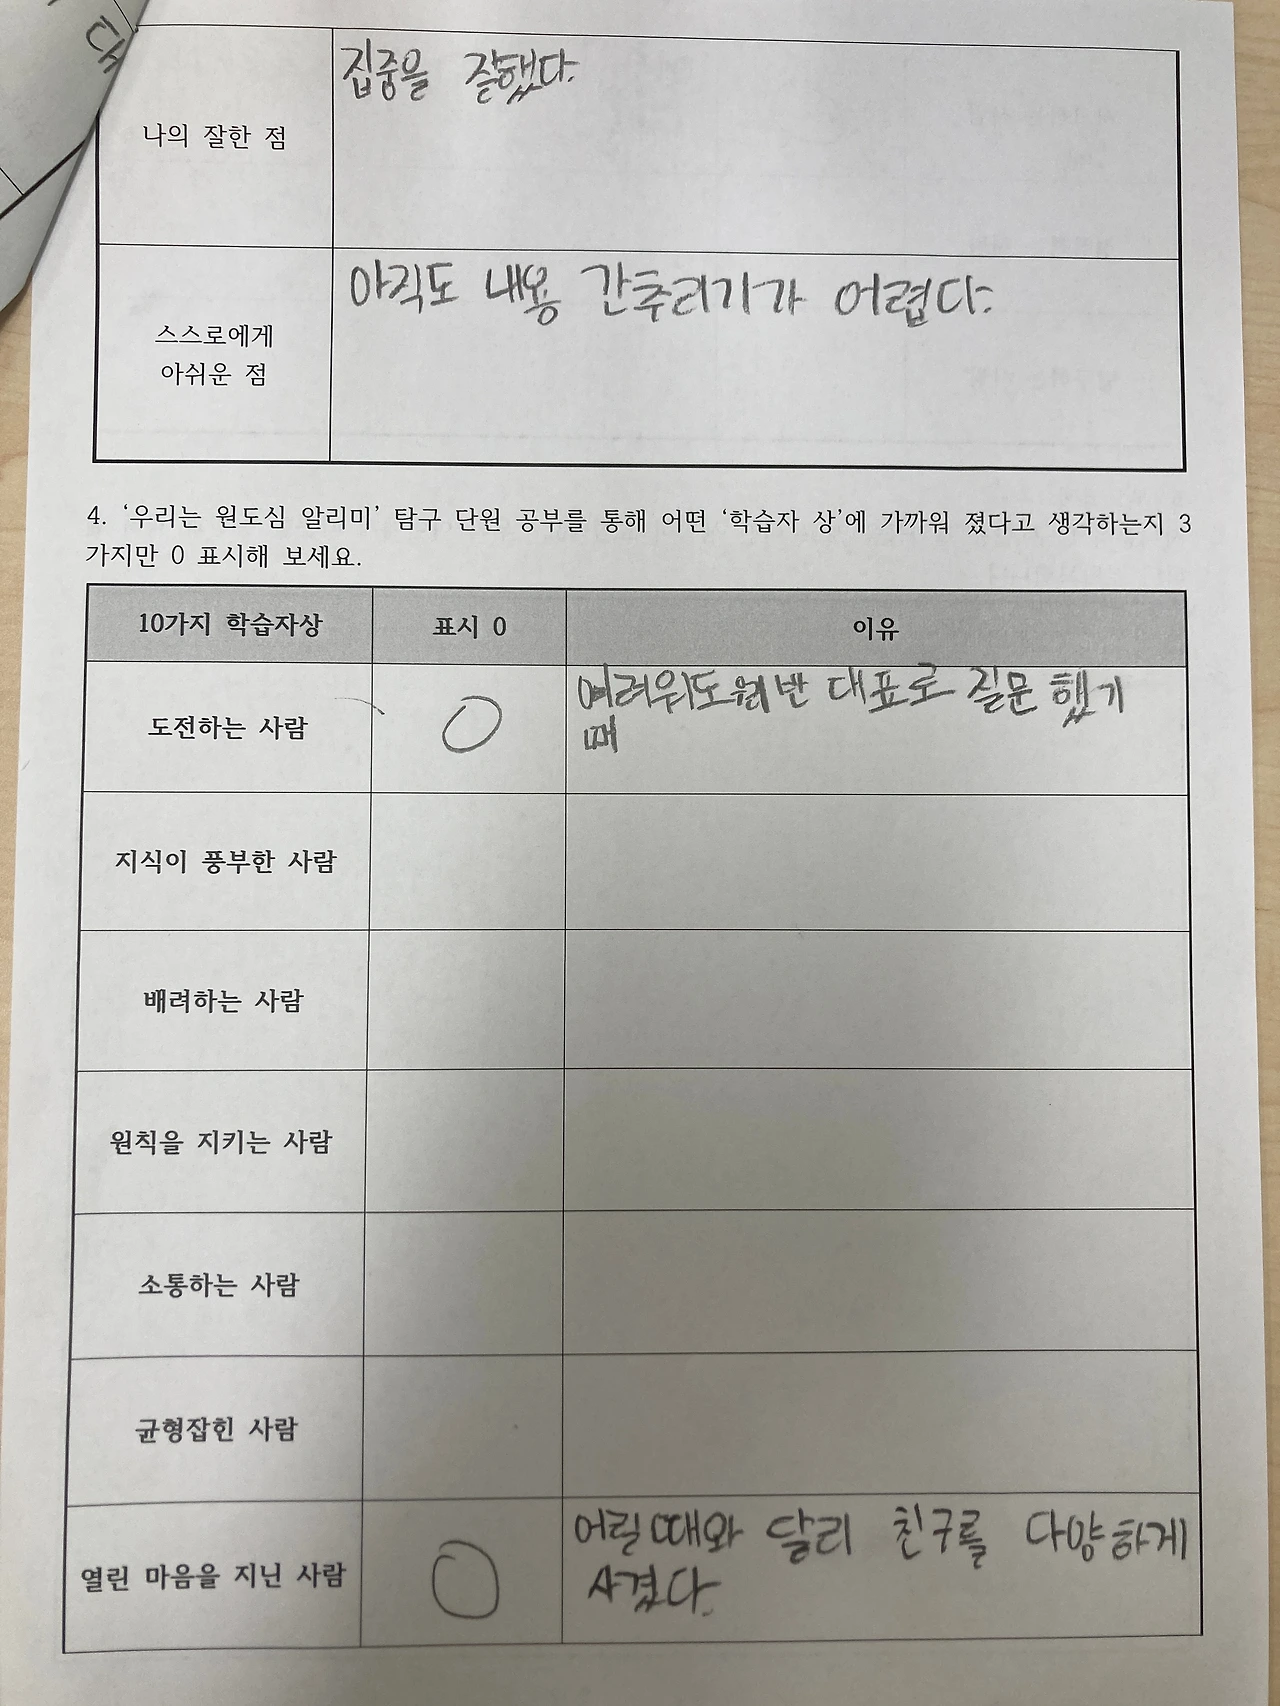 집중을 잘했다.
나의 잘한 점
아직도 내용 간추리기가 어렵다.
스스로에게
아쉬운 점
4. '우리는 원도심 알리미' 탐구 단원 공부를 통해 어떤 '학습자 상'에 가까워 졌다고 생각하는지 3
가지만 0 표시해 보세요.
10가지 학습자상 표시 0 이유
여러위도원 반 대표로 질문 했기
때
도전하는 사람 O
지식이 풍부한 사람
배려하는 사람
원칙을 지키는 사람
소통하는 사람
균형잡힌 사람
어릴때와 달리 친구를 다양하게
사겼다.
열린 마음을 지닌 사람 O